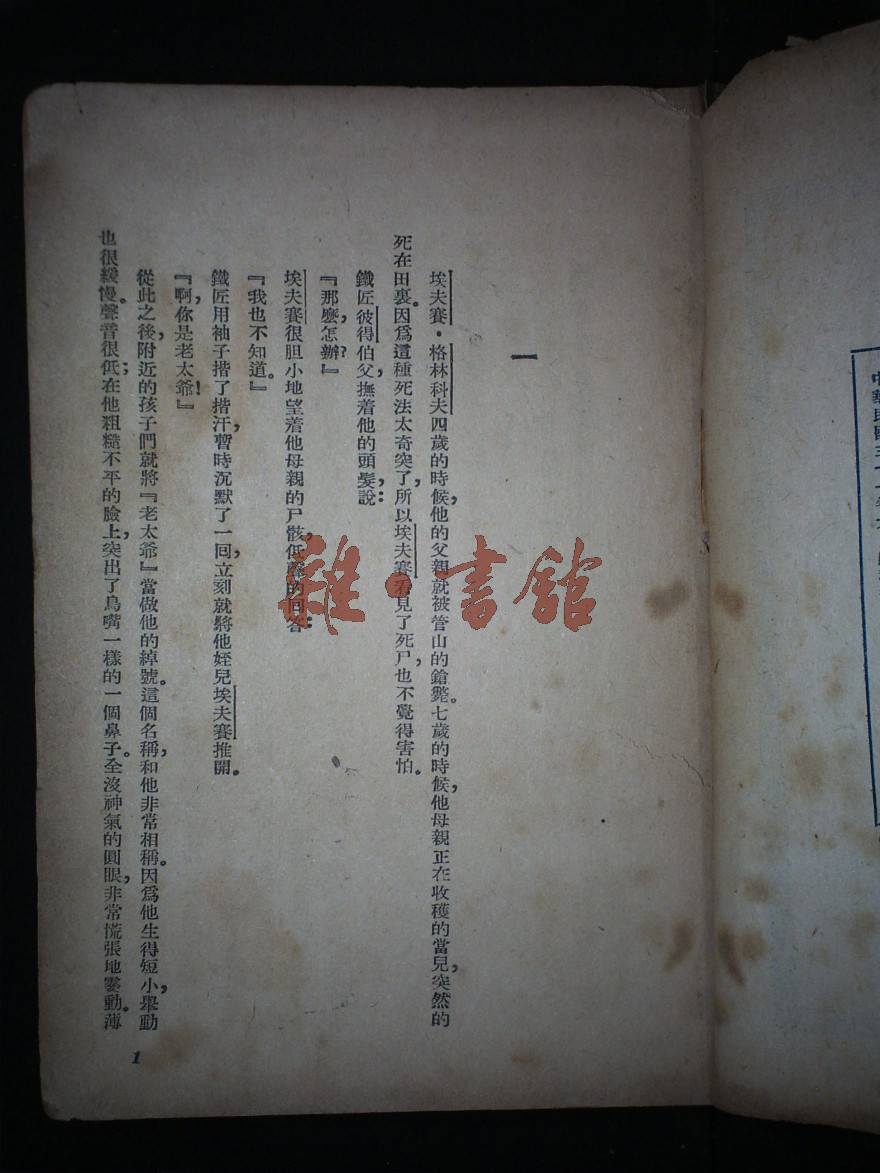 一
埃夫賽·格林科夫四歲的時候，他的父親就被管山的鎗斃。七歲的時候，他母親正在收穫的當兒，突然的
死在田裏。因爲這種死法太奇突了，所以埃夫賽看見了死尸，也不覺得害怕。
鐵匠彼得伯父，撫着他的頭髮，說：
『那麼，怎辦？』
埃夫賽很胆小地望着他母親的尸骸，低聲的回答：
『我也不知道。』
鐵匠用袖子揩了揩汗，暫時沉默了一回，立刻就將他姪兒埃夫賽推開。
『啊，你是老太爺！』
從此之後，附近的孩子們就將『老太爺』當做他的綽號。這個名稱，和他非常相稱。因爲他生得短小，舉動
也很緩慢。聲音很低；在他粗糙不平的臉上，突出了鳥嘴一樣的一個鼻子。全沒神氣的圓眼，非常慌張地霎動。薄
1
雜·書館
中華民國三十